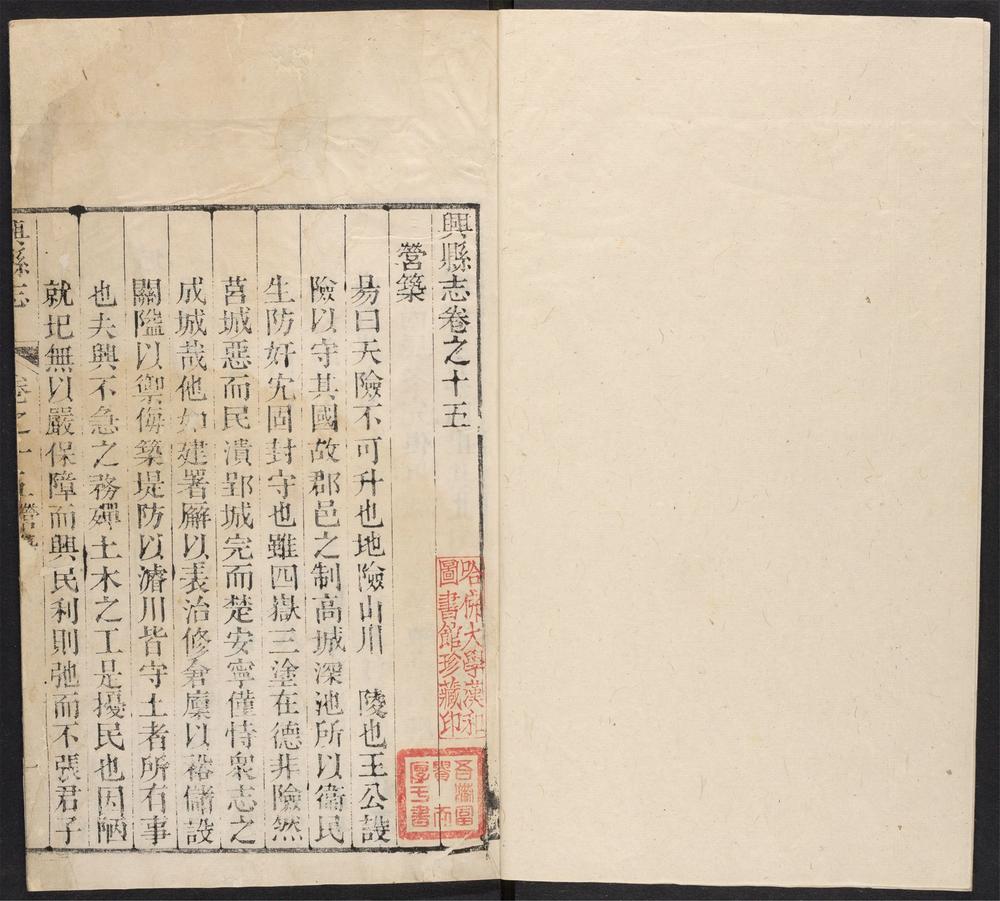 興縣志卷之十五
營築
易曰天險不可升也地險山川 陵也王公設
險以守其國故郡邑之制高城深池所以衛民
生防奸宄固封守也雖四嶽三塗在德非險然
莒城惡而民潰郢城完而楚安寧僅恃衆志之
成城哉他如建署廨以表治修倉廩以裕儲設
關隘以禦侮築堤防以濬川皆守土者所有事
也夫興不急之務殫土木之工是擾民也因陋
就圮無以嚴保障而興民利則弛而不張君子
興縣志 卷之十五 營築
哈佛大學漢和
圖書館珍藏印